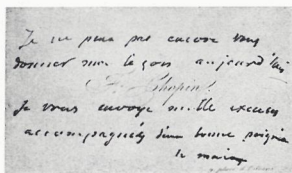 Je ne peux pas encore vous
donner une leçon aujourd'hui
Chopin
Je vous envoye mille excuses
accompagnées d'une bonne poignée
de main